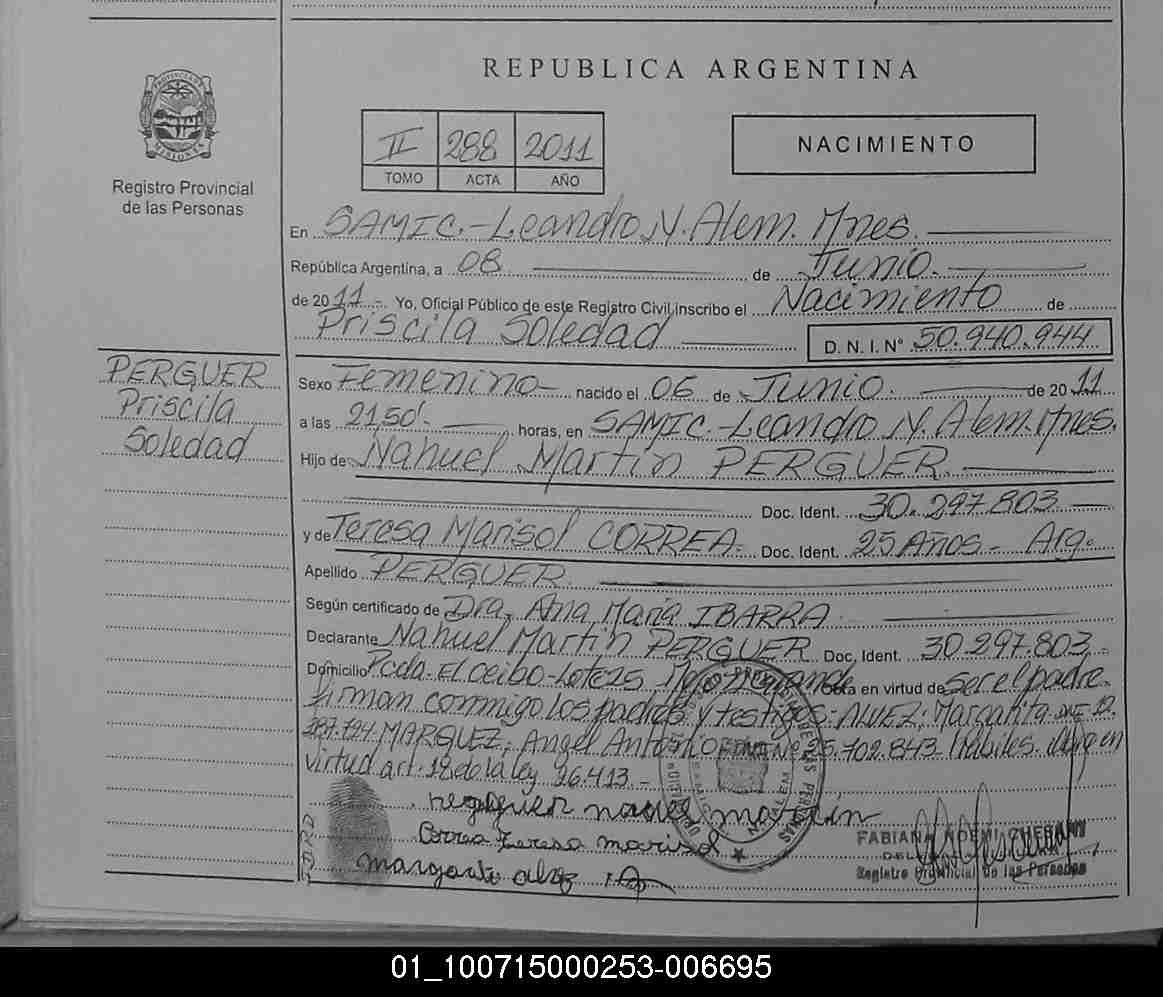 REPUBLICA ARGENTINA
PROVINCIA DE
MISIONES
Registro Provincial
de las Personas
II 288 2011
TOMO ACTA AÑO
NACIMIENTO
En SAMIC.-Leandro N. Alem. Mnes.
República Argentina, a 08 de Junio.
de 2011-. Yo, Oficial Público de este Registro Civil inscribo el Nacimiento de
Priscila Soledad D. N. I. N° 50.940.944
PERGUER
Priscila
Soledad
Sexo Femenino nacido el 06 de Junio. de 2011
a las 2150'. horas, en SAMIC.-Leandro N. Alem. Mnes.
Hijo de Nahuel Martin PERGUER.
Doc. Ident. 30.297.803
y de Teresa Marisol CORREA- Doc. Ident. 25 Años- Arg.
Apellido PERGUER
Según certificado de Dra. Ana María IBARRA
Declarante Nahuel Martin PERGUER Doc, Ident. 30.297.803.-
Domicilio Pcda. El ceibo-Lote 25, en virtud de ser el padre.
Firman conmigo los padres y testigos: ALVEZ, Margarita DNI 12.
287.794 MARQUEZ, Angel Antonio DNI N° 25.702.843 hábiles. en
virtud art. 18 de la ley 26.413.-
martin
Correa teresa marisol
FABIANA NOEMI
Registro Provincial de las Personas
01_100715000253-006695